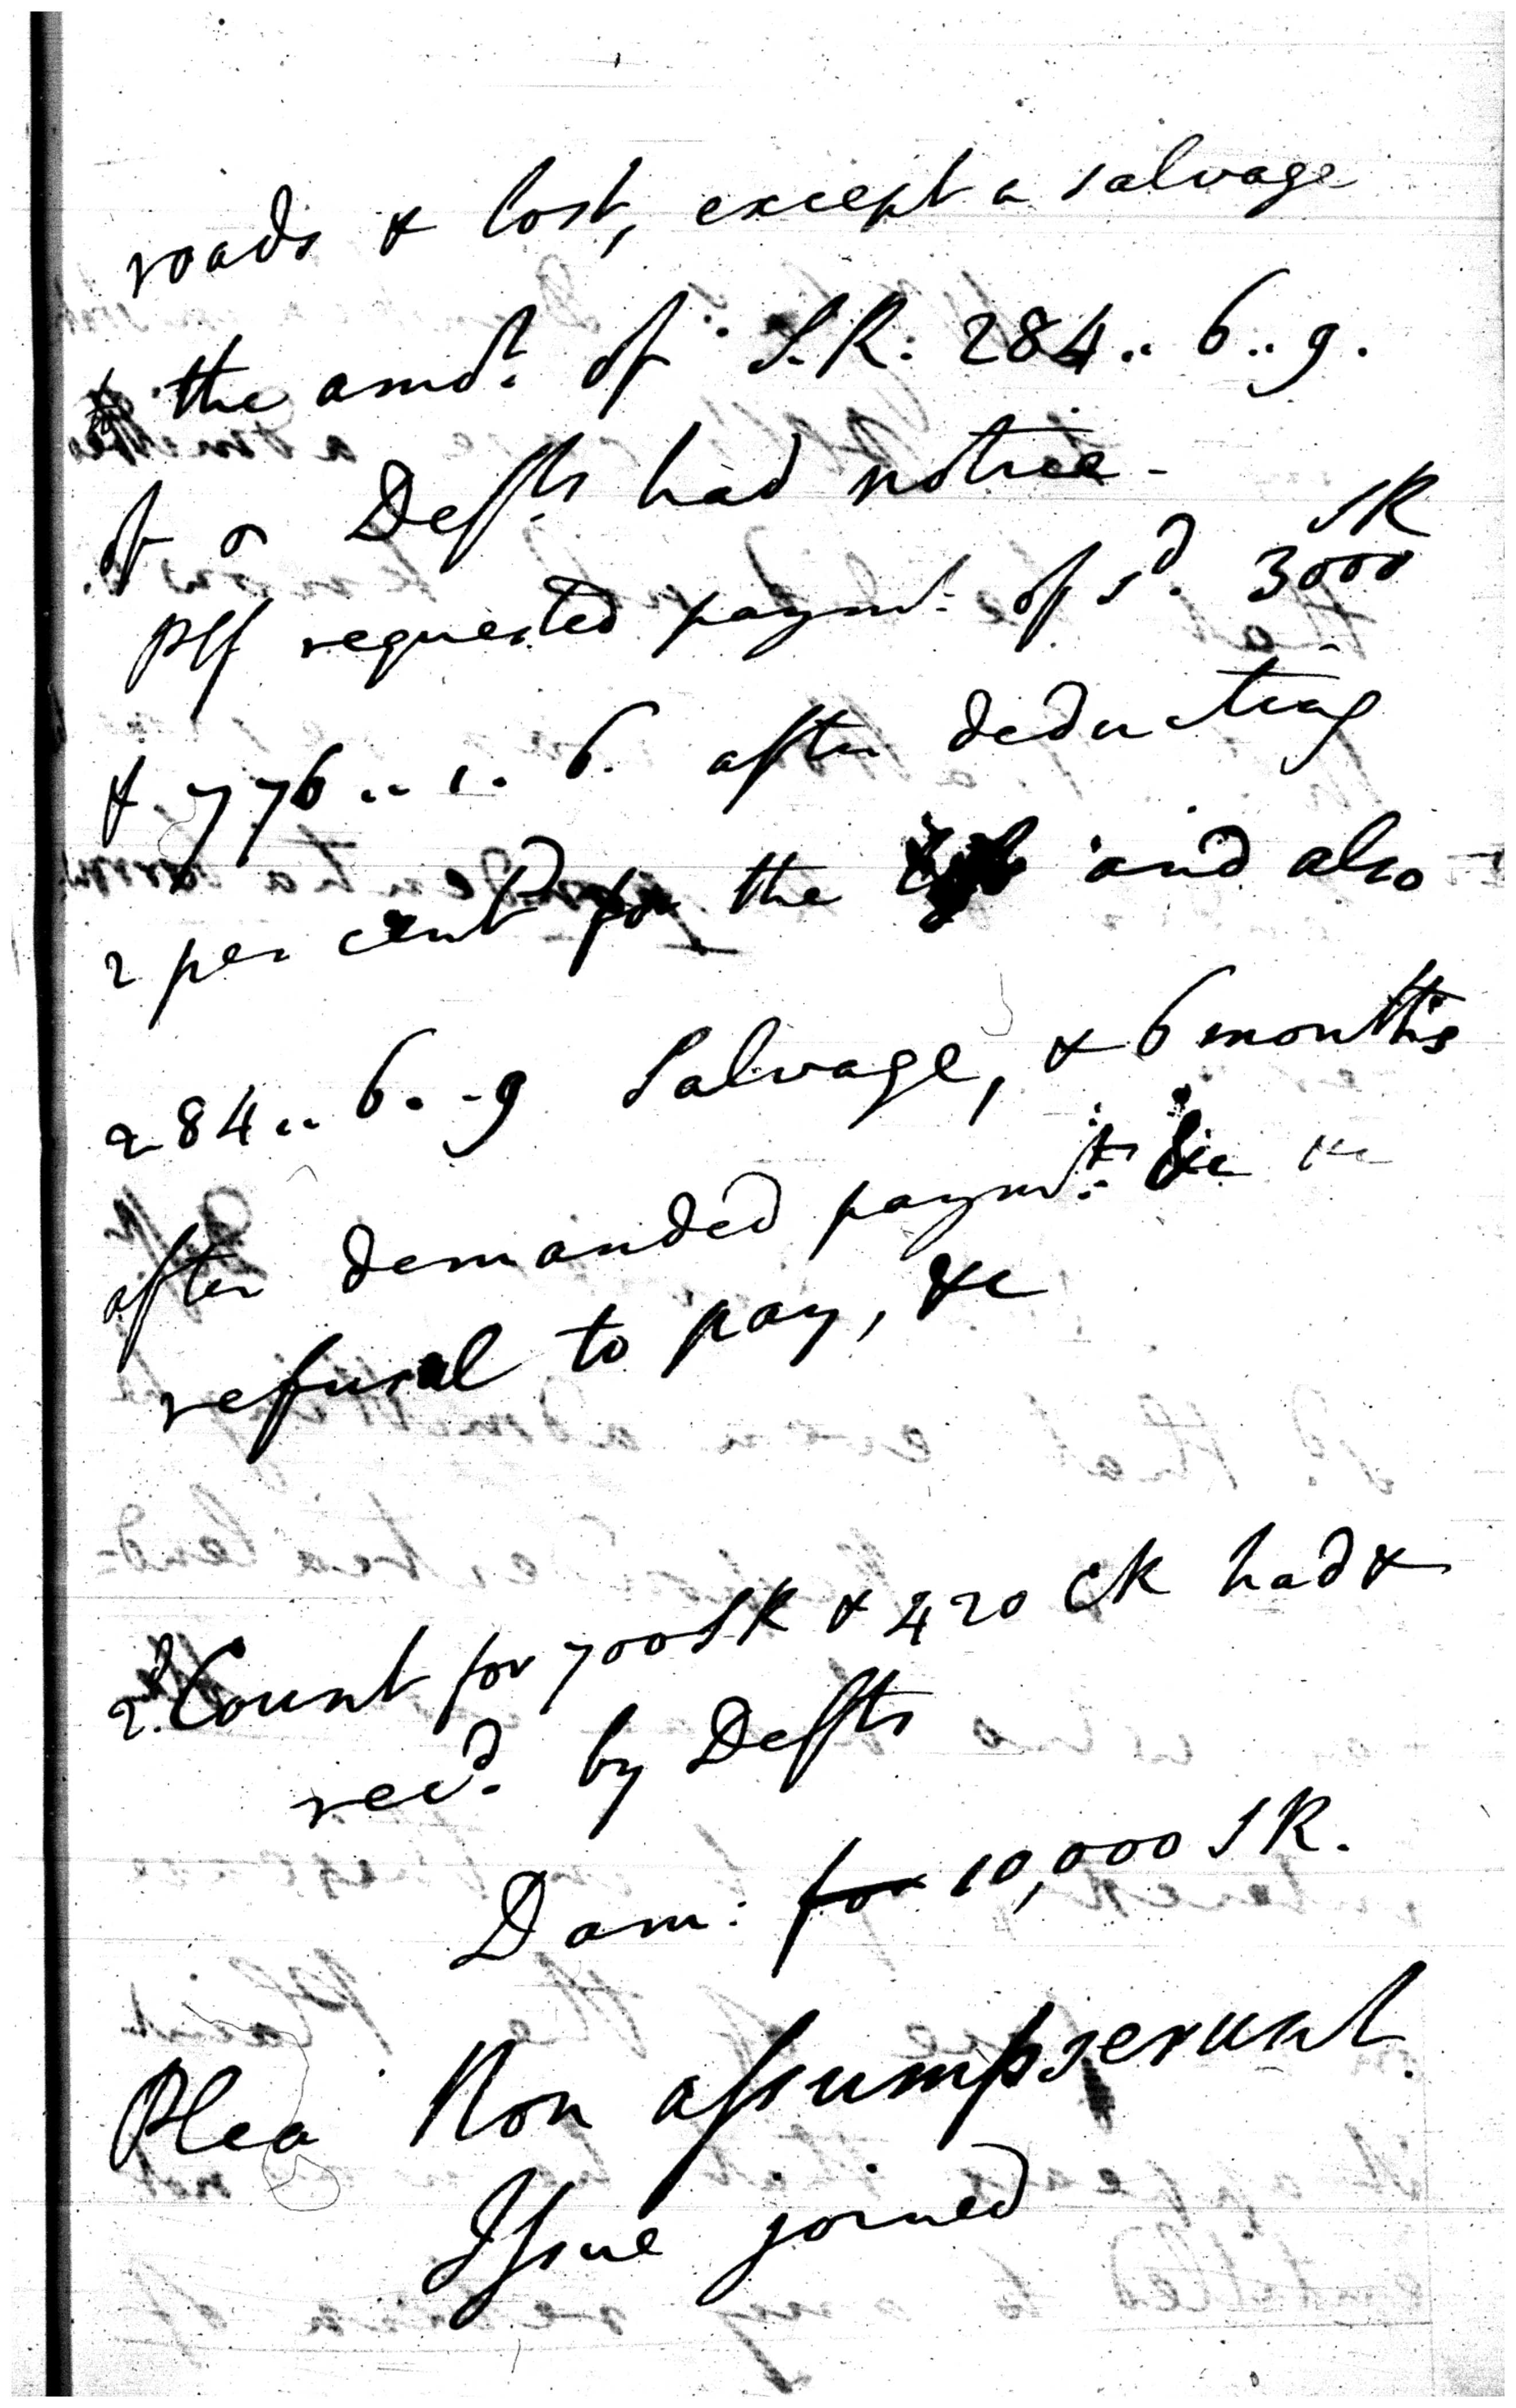 roads & lost, except a salvage
the amot. of S.R: 284.. 6.. 9.
of Defts. had notice -
Plf requested paymt. of sd. 3000 SR
& 776.. 1. 6. after deducting
2 per cent for the and also
284.. 6.. 9 Salvage, & 6 months
after demanded paymt. &c &c
refusal to pay, &c
2d. Count for 700 SR & 420 CR had &
recd. by Defts
Dam: for 10,000 SR.
Plea Non assumpserunt
Issue joined